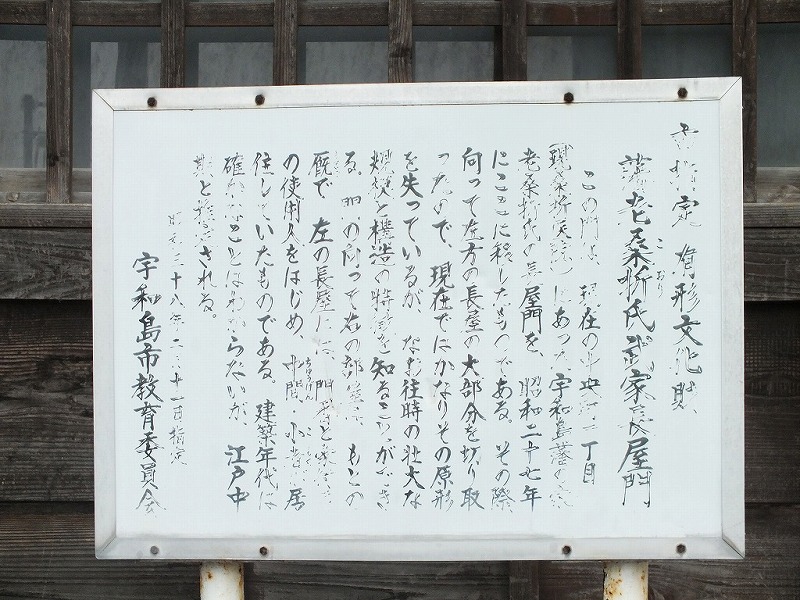 市指定 有形文化財
藩老桑折氏武家長屋門
こおり
この門は、現在の中央町二丁目
(現桑折医院)にあった宇和島藩の家
老桑折氏の長屋門を、昭和二十七年
にここに移したものである。その際
向って左方の長屋の大部分を切り取
ったので、現在ではかなりその原形
を失っているが、なお往時の壮大な
規模と構造の特徴を知ることができ
る。門の向って右の部屋は、もとの
厩で、左の長屋には、門番と
の使用人をはじめ、中間・小者が居
住していたものである。建築年代は
確かなことはわからないが、江戸中
期と推定される。
昭和三十八年 二月十一日指定
宇和島市教育委員会